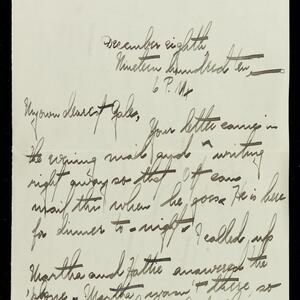 December eighth
Nineteen hundred ten,
6 P.M.
My own dearest Gale,
Your letter came in
the evening mail and writing
right away so that I can
mail this when he goes. He is here
for dinner to-night. I called up
Martha and Hattie answered the
'phone. Martha wasn't there so